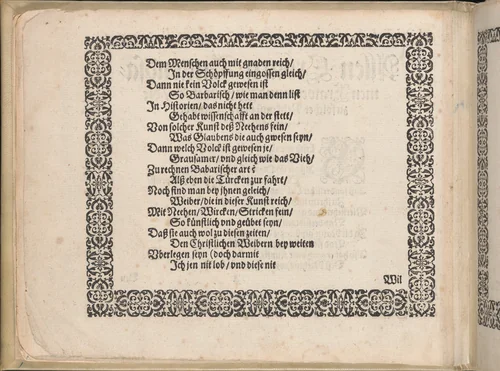 Dem Menschen auch mit gnaden reich/
In der Schöpffung eingossen gleich/
Dann nie kein Volck gewesen ist
So Barbarisch/ wie man denn list
In Historien/ das nicht hett
Gehabt wissenschafft an der stett/
Von solcher Kunst deß Nehens fein/
Was Glaubens die auch gwesen seyn/
Dann welch Volck ist gewesen je/
Grausamer/ vnd gleich wie das Vieh/
Zu rechnen Babarischer art?
Alß eben die Türcken zur fahrt/
Noch find man bey jhnen geleich/
Weiber/ die in dieser Kunst reich/
Mit Nehen/ Wircken/ Stricken fein/
So künstlich vnd geübet seyn/
Daß sie auch wol zu diesen zeiten/
Den Christlichen Weibern bey weiten
Vberlegen seyn (doch darmit
Ich jen nit lob/ vnd diese nit
Wil